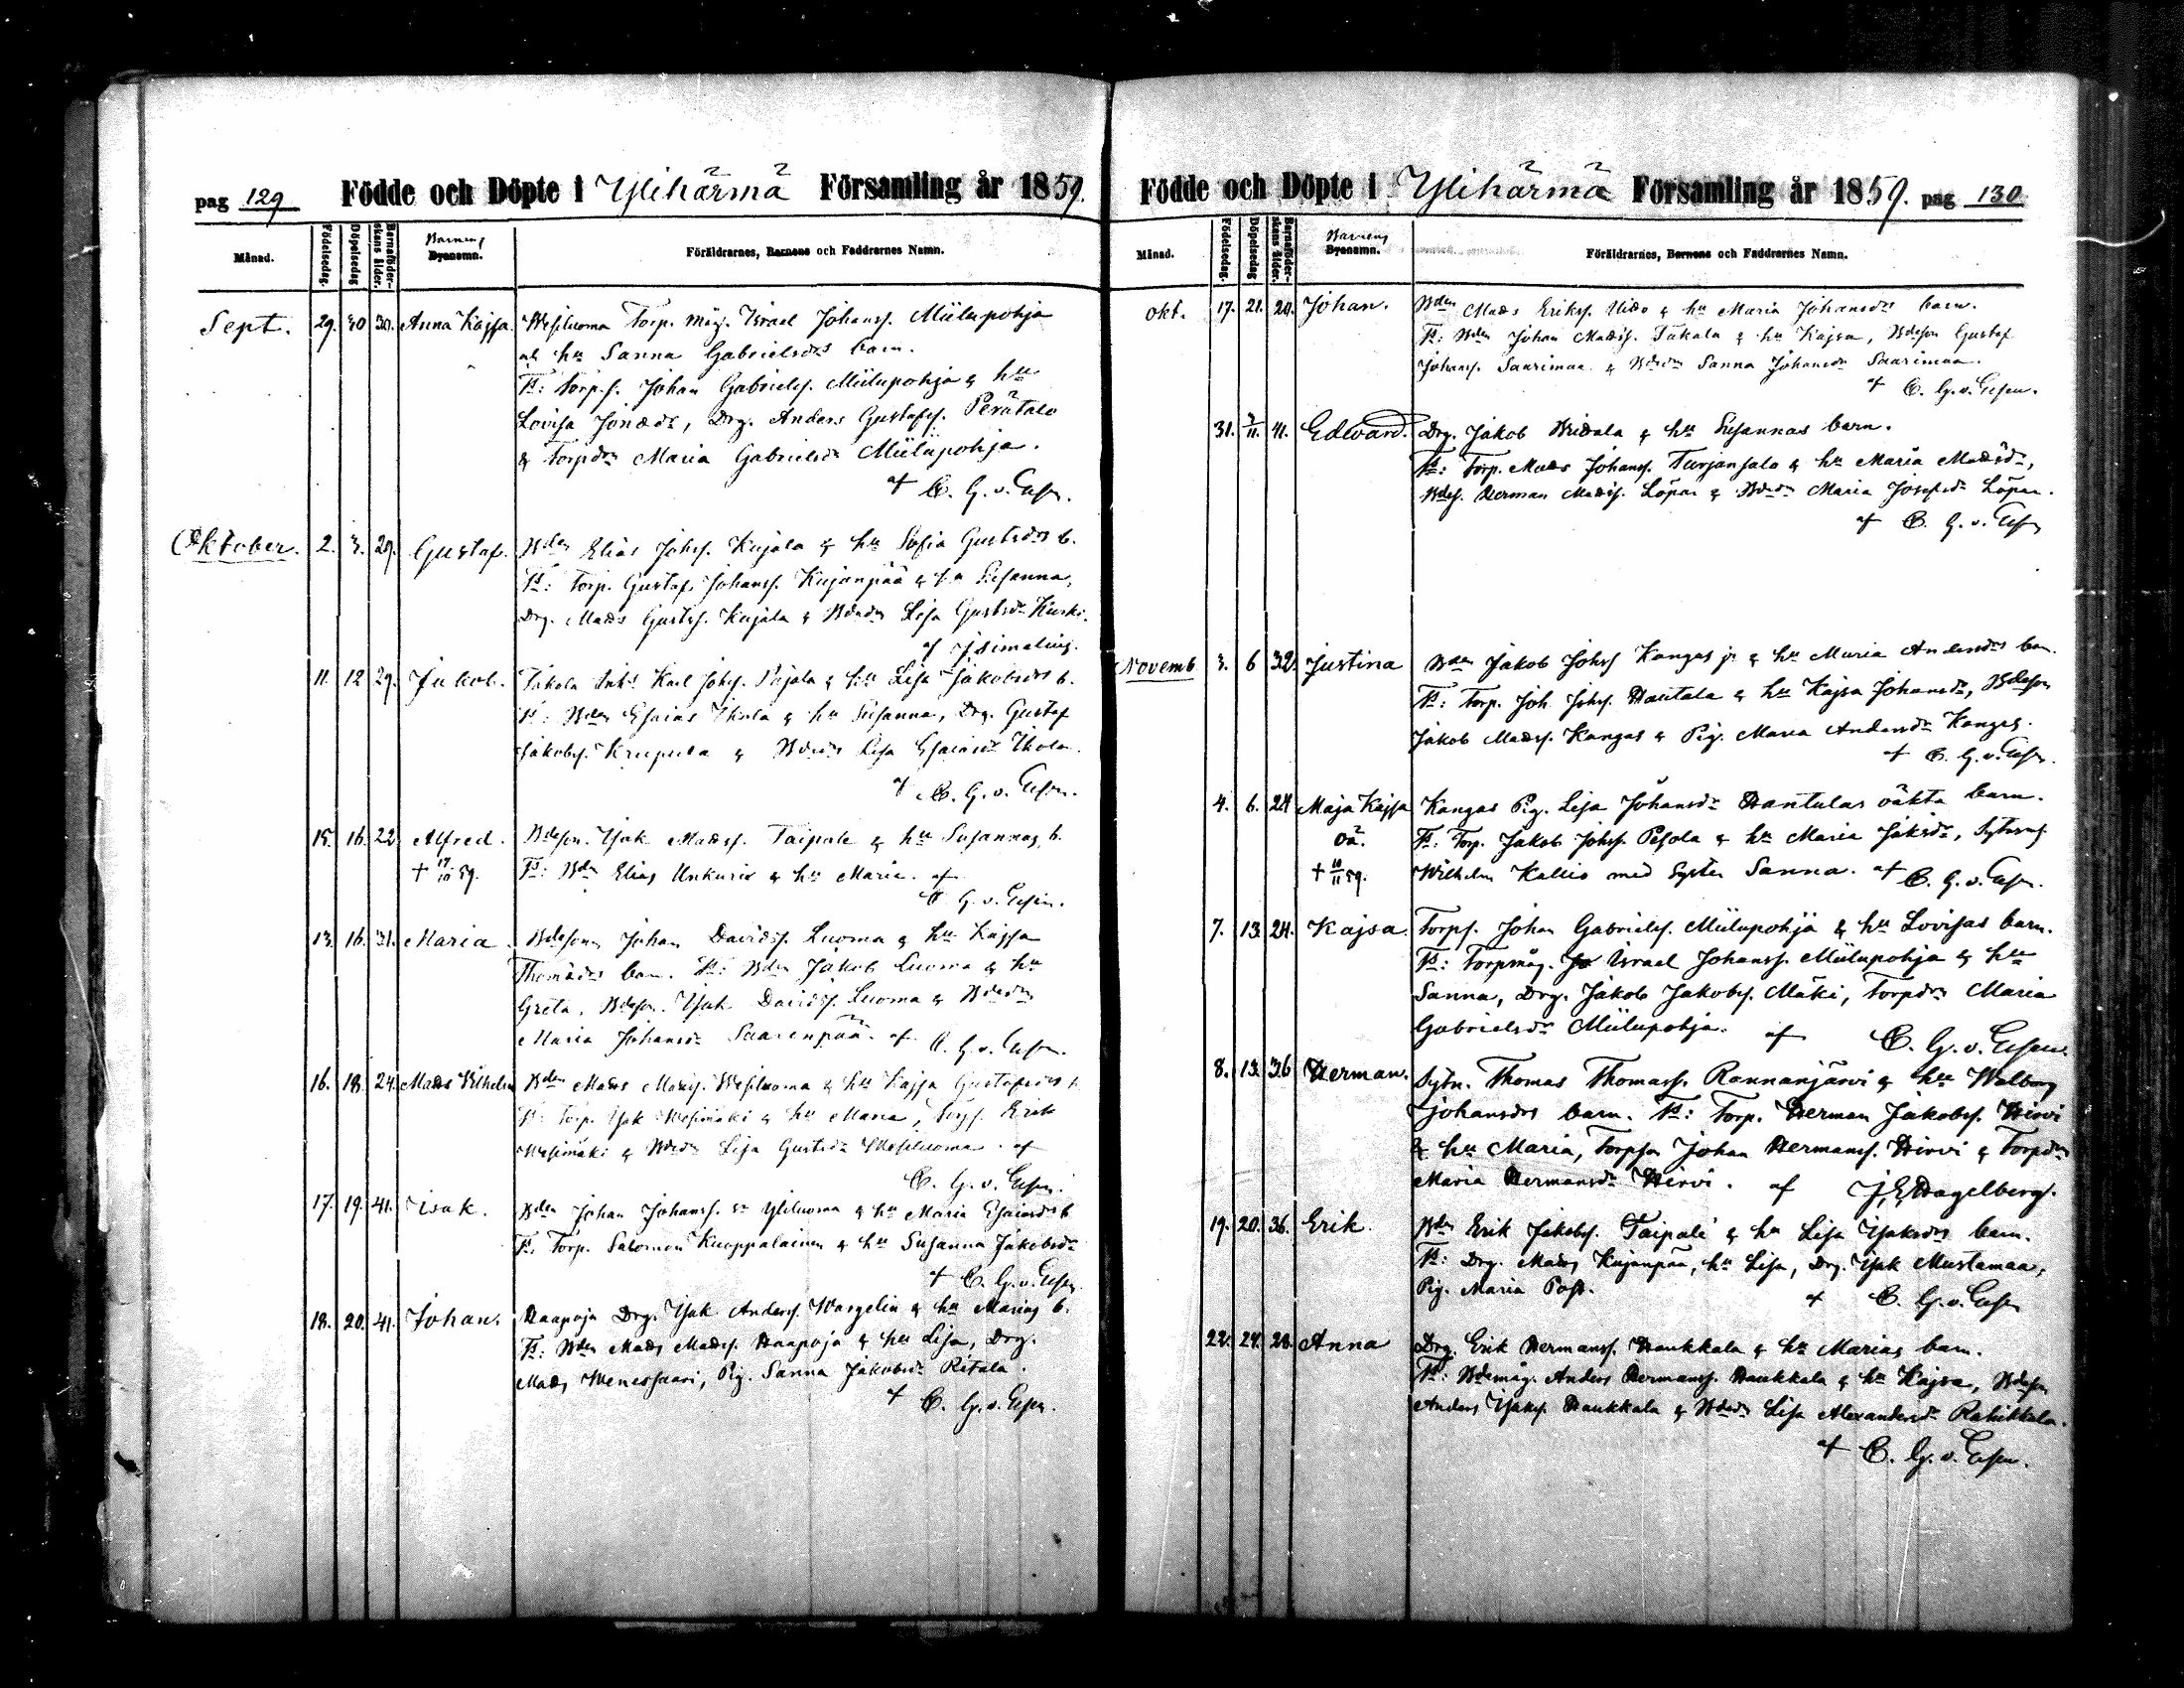 pag 129 Födde och Döpte i Ylihärmä Församling år 1859.
Månad. Födelsedag. Döpelsedag Barnaföderskans ålder. Barnens Byanamn. Föräldrarnes, Barnens och Faddrarnes Namn.
Sept. 29. 30 30. Anna Kajsa. Wesiluoma Torp. måg. Israel Johanss. Miilupohja
och hu Sanna Gabrielsdrs barn.
Fr: Torp.s. Johan Gabrielss. Miilupohja & hu
Lovisa Jonædr, Drg. Anders Gustafss. Perätalo
& Torpdrn Maria Gabrielsdr Miilupohja.
af C. G. v. Essen.
Oktober. 2. 3. 29. Gustaf. Bden Elias Johss. Kujala & hu Sofia Gustsdrs b.
Fr: Torp. Gustaf Johanss. Kujanpää & hu Susanna,
Drg. Matts Gustss. Kujala & Bdedr Lisa Gustsdr Kuski.
af J Simelius.
11. 12 29. Jakob. Karl Johss. Pajala & hu Lisa Jakobsdrs b.
Fr: Bden Esaias & hu Susanna, Drg. Gustaf
Jakobss. & Bdedr Lisa Esaiasdr
af C. G. v. Essen.
15. 16. 22 Alfred. Bdeson. Isak Matss. Taipale & hu Susannas b.
† 17/10 59. Fr: Bdn Elias Unkuri & hu Maria. af
C. G. v. Essen.
13. 16. 31. Maria. Bdesonen Johan Davidss. Luoma & hu Kajsa
Thomædrs barn. Fr: Bden Jakob Luoma & hu
Greta, Bdeson. Isak Davidss. Luoma & Bdedrn
Maria Johansdr Saarenpää. af C. G. v. Essen.
16. 18. 24. Matts Vilhelm Bden Matts Matss. Wesiluoma & hu Kajsa Gustafsdrs b.
Fr: Torp. Isak Wesimäki & hu Maria, Torps. Erik
Wesimäki & Bdedr Lisa Gustsdr Wesiluoma. af
C. G. v. Essen.
17. 19. 41. Isak. Bden Johan Johanss. sr Yliluoma & hu Maria Esaiasdrs b.
Fr. Torp. Salomon Kuoppalainen & hu Susanna Jakobsdr
af C. G. v. Essen
18. 20. 41. Johan. Haapoja Drg. Isak Anderss. Wargelin & hu Marias b.
Fr: Bden Matts Matss. Haapoja & hu Lisa, Drg.
Matts Wenessaari, Pig. Sanna Jakobsdr Ritala.
af C. G. v. Essen.
Födde och Döpte i Ylihärmä Församling år 1859. pag 130
Månad. Födelsedag. Döpelsedag Barnaföderskans ålder. Barnens Byanamn. Föräldrarnes, Barnens och Faddrarnes Namn.
Okt. 17. 21. 20. Johan. Bden Matts Erikss. & hu Maria Johansdrs barn.
Fr: Bden Johan Matss. Takala & hu Kajsa, Bdeson Gustaf
Johanss. Saarimaa & Bdedr Sanna Johansdr Saarimaa.
af C. G. v. Essen.
31. 41. Edward. Drg. Jakob & hu Susannas barn.
Fr: Torp. Matts Johanss. Turjansalo & hu Maria Matsdr,
Bdes. Herman Matss. Löpar & Bdedr Maria Josefsdr Löpar.
af C. G. v. Essen
Novemb. 3. 6 32. Justina Bden Jakob Johss Kangas jr & hu Maria Andersdrs barn.
Fr: Torp. Joh. Johss. Hautala & hu Kajsa Johansdr, Bdeson
Jakob Matss. Kangas & Pig. Maria Andersdr Kangas.
af C. G. v. Essen.
4. 6. 24 Maja Kajsa Kangas Pig. Lisa Johansdr Hantulas oäkta barn.
oä. Fr: Torp. Jakob Johss. Pesola & hu Maria Jaksdr,
† 10/11 59. Wilhelm Kallio med Syster Sanna. af C. G. v. Essen.
7. 13. 24. Kajsa. Torps. Johan Gabrielss. Miilupohja & hu Lovisas barn.
Fr: Torpmåg. Israel Johanss. Miilupohja & hu
Sanna, Drg. Jakob Jakobss. Mäki, Torpdrn Maria
Gabrielsdr Miilupohja. af C. G. v. Essen.
8. 13. 36 Herman. Sytn. Thomas Thomass. Rannanjärvi & hu Walborg
Johansdrs barn. Fr: Torp. Herman Jakobss. Hirvi
& hu Maria, Torpson Johan Hermanss. Hirvi & Torpdrn
Maria Hermansdr Hirvi. af J. E. Hagelberg.
19. 20. 36. Erik. Bdn Erik Jakobss. Taipale & hu Lisa Isaksdrs barn.
Fr: Drg. Matts Kujanpää, hu Lisa, Drg. Isak Mustamaa,
Pig. Maria Post. af C. G. v. Essen
22. 24. 28. Anna Drg. Erik Hermanss. Haukkala & hu Marias barn.
Fr: Bdemåg. Anders Hermanss. Haukkala & hu Kajsa, Bdeson
Anders Isakss. Haukkala & Bdedr Lisa Alexandersdr Rahikkala.
af C. G. v. Essen.